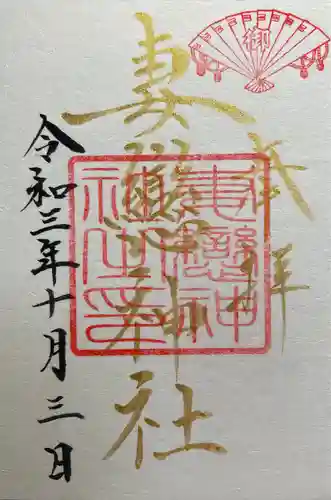 奉拝
妻戀神社
令和三年十月三日
妻戀神社之印